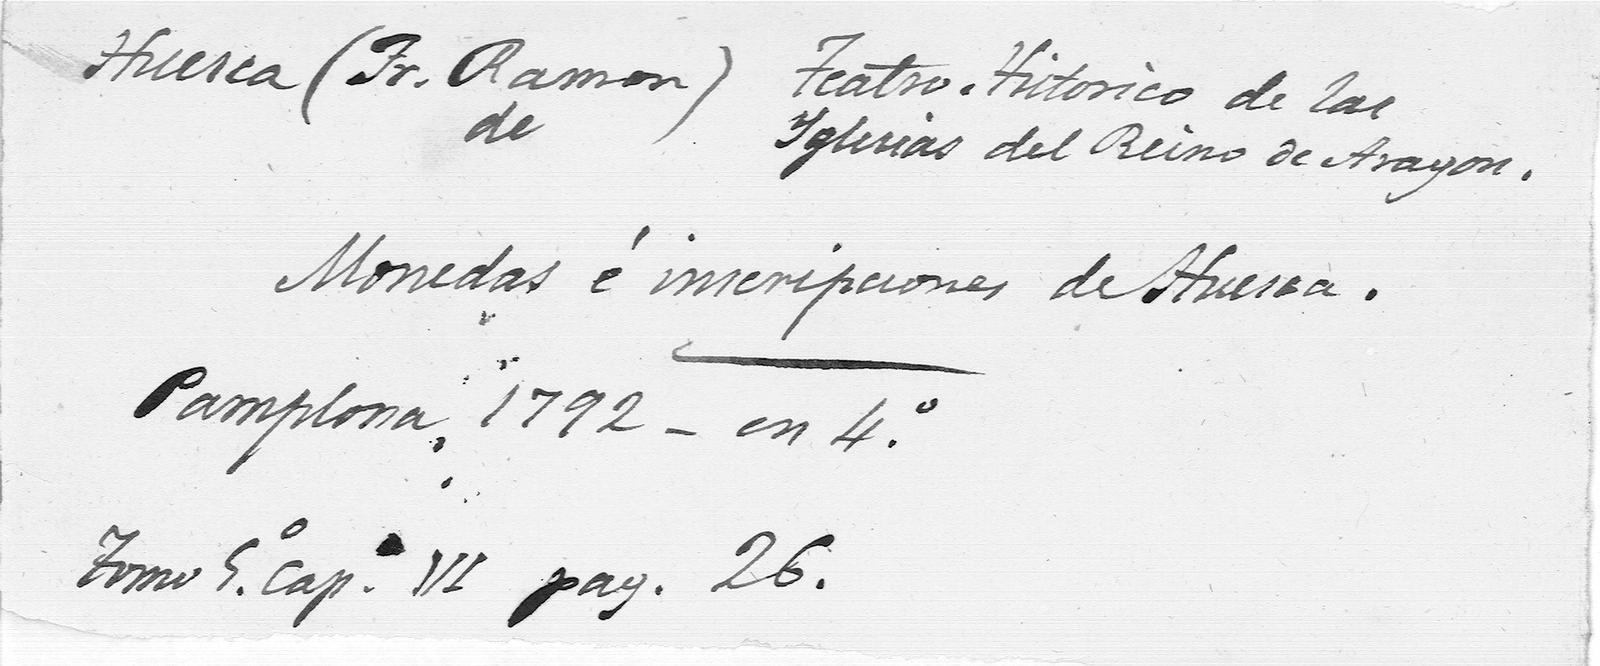 Huesca (Fr. Ramon de) Teatro Hitorico de las
Yglesias del Reino de Aragon.
Monedas é inscripciones de Huesca.
Pamplona, 1792 - en 4.º
Tomo 5.º Cap. VI pag. 26.